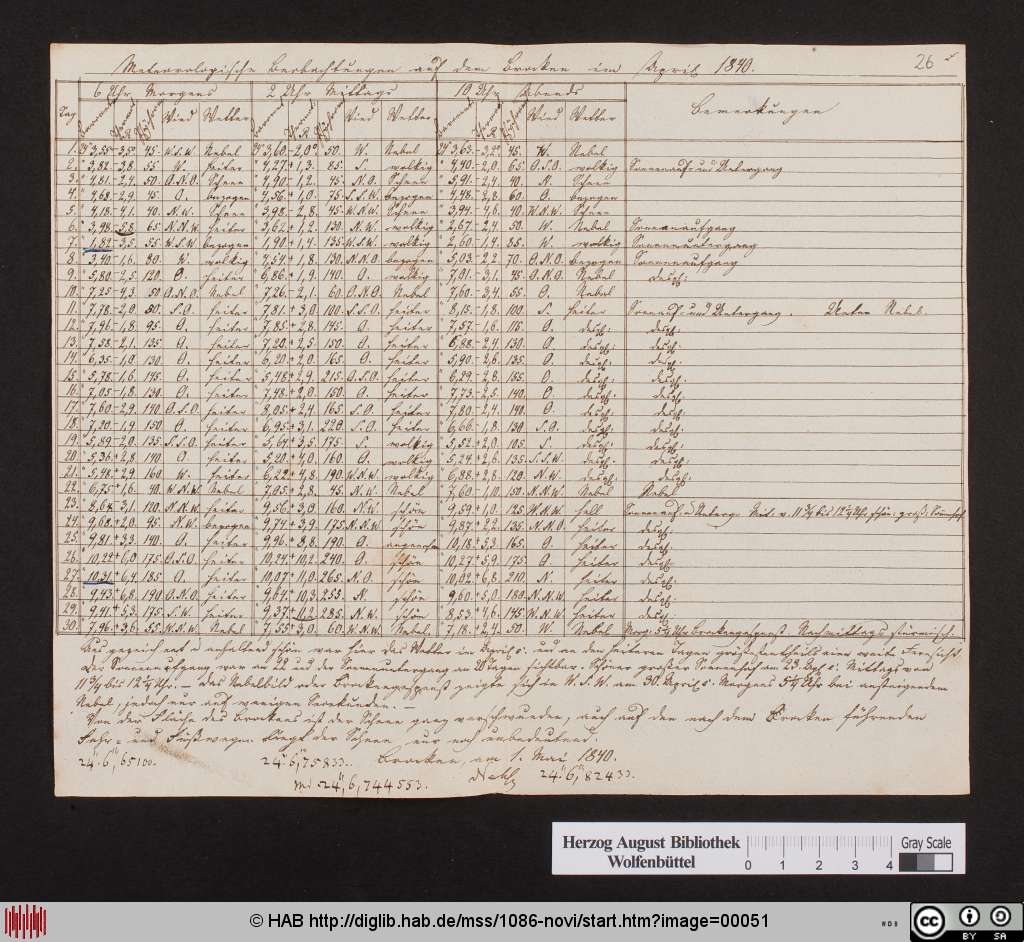 Meteorologische Beobachtungen auf dem Brocken im April 1840.
26
6 Uhr Morgens 2 Uhr Mittags 10 Uhr Abends
Tag Wind Wetter Wind Wetter Wind Wetter Bemerkungen
1. 3,55 45. W.S.W. Nebel 3,60 50. W. Nebel 3,63 45. W. Nebel
2. 3,82 3,8 55 W. heiter 4,27 1,3 65 S. wolkig 4,40 2,0 65. O.S.O. wolkig Sonnenauf- und Untergang
3. 4,81 2,4 50. O.N.O. Schnee 4,90 1,2 45. N.O. Schnee 5,91 2,4 40. N. Schnee
4. 4,68 2,9 45. O. bezogen 4,56 1,0 75. S.S.W. bezogen 4,48 2,8 60. O. bezogen
5. 4,18 4,1 40. N.W. Schnee 3,98 2,8 45. W.N.W. Schnee 3,94 4,6 40. W.N.W. Schnee
6. 3,98 5,8 65 N.N.W. heiter 3,62 1,2 130. N.W. wolkig 2,67 2,4 50. W. Nebel Sonnenaufgang
7. 1,82 3,5 55 W.S.W. bezogen 1,90 1,4 135. W.S.W. wolkig 2,60 1,4 85. W. wolkig Sonnenuntergang
8. 3,40 1,6 80. W. wolkig 4,54 1,8 130. N.N.O. bezogen 5,03 2,2 70. O.N.O. bezogen Sonnenaufgang
9. 5,80 2,5 120. O. heiter 6,86 1,9 140. O. wolkig 7,91 3,1 45. O.N.O. Nebel desgl.
10. 7,25 4,3 50 O.N.O. Nebel 7,26 2,1 60. O.N.O. Nebel 7,60 3,4 55. O. Nebel
11. 7,78 2,0 50. S.O. heiter 7,81 3,0 100. S.S.O. heiter 8,15 1,8 100. S. heiter Sonnenauf- und Untergang. Unten Nebel.
12. 7,96 1,8 95 O. heiter 7,85 2,8 145. O. heiter 7,57 1,6 115. O. desgl. desgl.
13. 7,58 2,1 135 O. heiter 7,20 2,5 150. O. heiter 6,88 2,4 130. O. desgl. desgl.
14. 6,35 1,0 130 O. heiter 6,20 2,0 165. O. heiter 5,90 2,6 135. O. desgl. desgl.
15. 5,78 1,6 145. O. heiter 5,48 2,9 215. O.S.O. heiter 6,29 2,8 155. O. desgl. desgl.
16. 7,05 1,8 130. O. heiter 7,48 2,0 150. O. heiter 7,73 2,5 140. O. desgl. desgl.
17. 7,60 2,9 140. O.S.O. heiter 8,05 2,4 165. S.O. heiter 7,80 2,4 140. O. desgl. desgl.
18. 7,20 1,9 150. O. heiter 6,95 3,1 220. S.O. heiter 6,66 1,8 130. S.O. desgl. desgl.
19. 5,59 2,0 135. S.S.O. heiter 5,64 3,5 175. S. wolkig 5,52 2,0 105. S. desgl. desgl.
20. 5,36 2,8 140 O. heiter 5,20 4,0 160. O. wolkig 5,24 2,6 135. S.S.W. desgl. desgl.
21. 5,48 2,9 160. W. heiter 6,22 4,8 190. W.N.W. wolkig 6,88 2,8 120. N.W. desgl. desgl.
22. 6,75 1,6 40. W.N.W. Nebel 7,05 2,8 45. N.W. Nebel 7,60 1,0 150. N.N.W. Nebel Nebel
23. 8,64 3,1 120. N.N.W. heiter 9,56 3,0 160. N.W. schön 9,59 1,0 125. W.N.W. hell
24. 9,68 2,0 95. N.W. bezogen 9,74 3,9 175. N.N.W. schön 9,87 2,2 135. N.N.O. heiter desgl.
25. 9,81 3,3 140. O. heiter 9,96 8,8 190. O. angenehm 10,18 5,3 165. O. heiter desgl.
26. 10,22 6,0 175. O.S.O. heiter 10,24 10,2 240. O. schön 10,27 5,9 175. O. heiter desgl.
27. 10,31 6,4 185. O. heiter 10,07 11,0 265. N.O. schön 10,02 6,8 210. N. heiter desgl.
28. 9,43 6,8 190. O.N.O. heiter 9,64 10,3 253. N. schön 9,60 5,0 180. N.N.W. heiter desgl.
29. 9,41 5,3 175. S.W. heiter 9,37 10,2 285. N.W. schön 8,53 4,6 145. W.N.W. heiter desgl.
30. 7,96 3,6 55. W.N.W. Nebel 7,55 3,0 60. W.N.W. Nebel. 7,18 2,4 50. W. Nebel Morg. 5¼ Uhr Brockengespenst. Nachmittags stürmisch.
Ausgezeichnet und anhaltend schön war hier das Wetter im April c. und an den heitern Tagen größtentheils eine weite Fernsicht.
Der Sonnenaufgang war an 22 und der Sonnenuntergang an 20 Tagen sichtbar. Schöner großer Sonnenhof am 23. April c. Mittags von
11¾ bis 12¼ Uhr. — Das Nebelbild oder Brockengespenst zeigte sich in W.S.W. am 30. April c. Morgens 5¼ Uhr bei aufsteigendem
Nebel, jedoch nur auf wenigen Secunden. —
Von der Fläche des Brockens ist der Schnee ganz verschwunden, auch auf den nach dem Brocken führenden
Fahr- und Fußwegen liegt der Schnee nur noch unbedeutend.
24" 6''',65100. 24" 6''',75833. Brocken, am 1. Mai 1840.
24" 6''',82433.
24",6,744553.
Herzog August Bibliothek
Wolfenbüttel
0 1 2 3 4
Gray Scale
© HAB http://diglib.hab.de/mss/1086-novi/start.htm?image=00051
WDB
cc BY SA